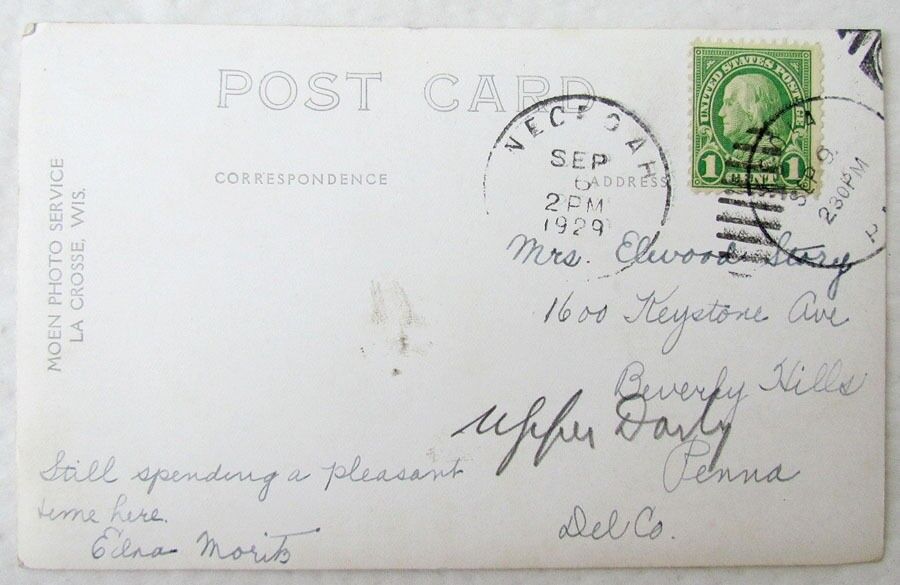 POST CARD
CORRESPONDENCE
ADDRESS
MOEN PHOTO SERVICE
LA CROSSE, WIS.
UNITED STATES POSTAGE
1 1
SEP
6
2 PM
1929
SEP 9
230PM
PA
Mrs. Elwood Story
1600 Keystone Ave
Beverly Hills
Upper Darby
Penna
Del Co.
Still spending a pleasant
time here.
Edna Moritz